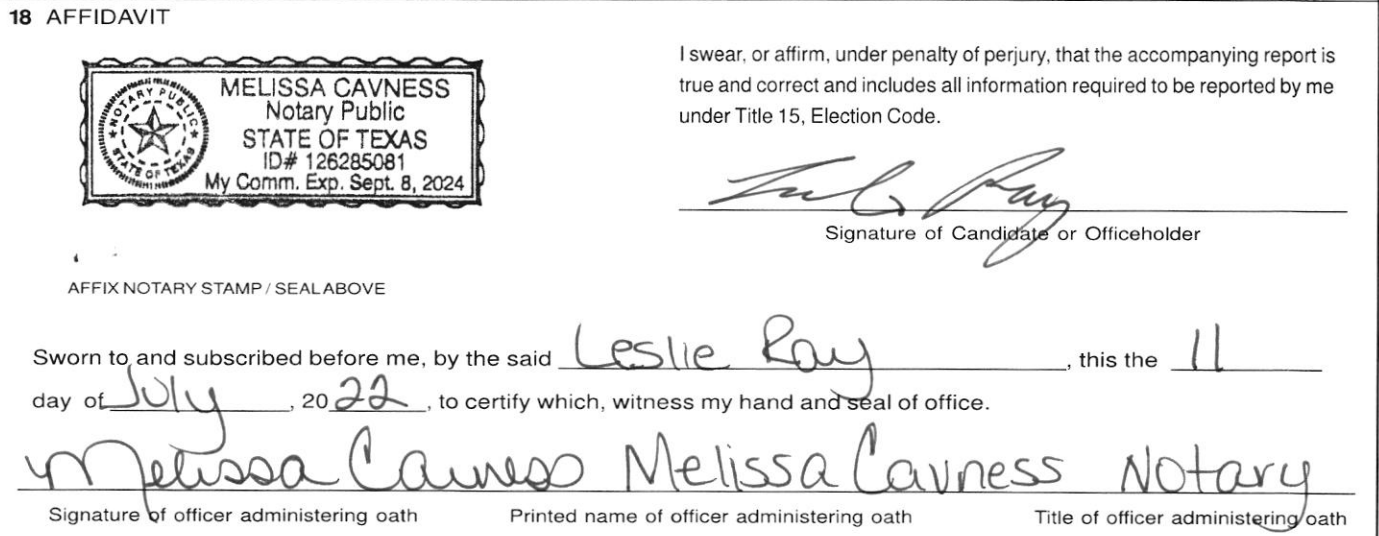 18 AFFIDAVIT
MELISSA CAVNESS
Notary Public
STATE OF TEXAS
ID# 126285081
My Comm. Exp. Sept. 8, 2024
NOTARY PUBLIC
STATE OF TEXAS
I swear, or affirm, under penalty of perjury, that the accompanying report is
true and correct and includes all information required to be reported by me
under Title 15, Election Code.
Signature of Candidate or Officeholder
AFFIX NOTARY STAMP / SEAL ABOVE
Sworn to and subscribed before me, by the said Leslie Ray, this the 11
day of July, 2022, to certify which, witness my hand and seal of office.
Melissa Cavness Melissa Cavness Notary
Signature of officer administering oath Printed name of officer administering oath Title of officer administering oath